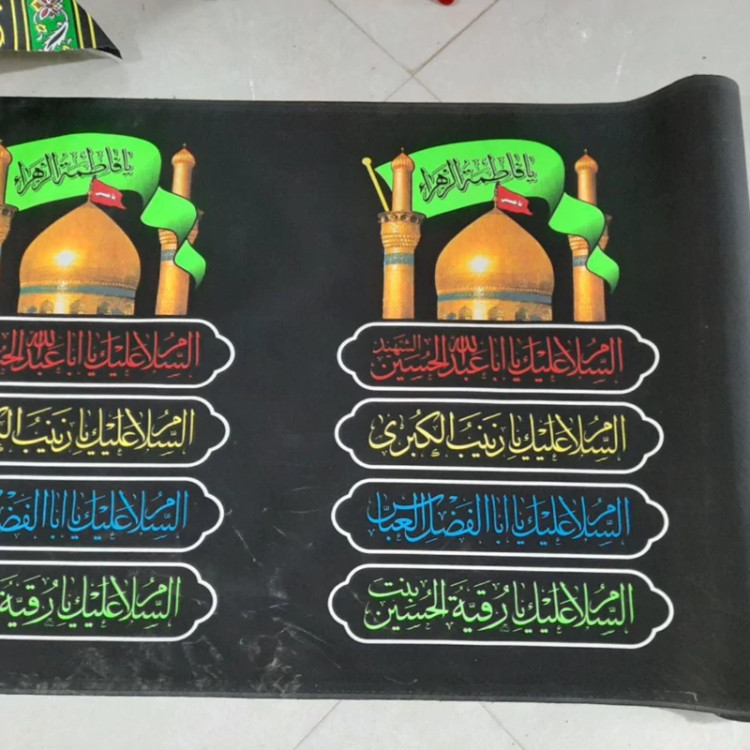 يا فاطمة الزهراء
يا حسين
السلام عليك يا ابا عبدالله الحسين الشهيد
السلام عليك يا زينب الكبرى
السلام عليك يا ابا الفضل العباس
السلام عليك يا رقية بنت الحسين
يا فاطمة الزهراء
السلام عليك يا ابا عبدالله
السلام عليك يا زينب
السلام عليك يا ابا
السلام عليك يا رقية